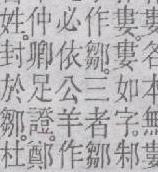 婁名婁如本無
作鄒三字者鄒邾婁
必依公羊作
仲卿足證鄭
姓封於鄒杜